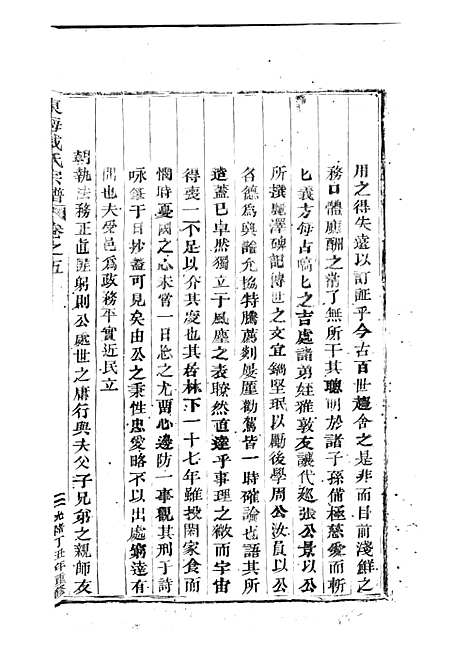 用之得失遠以訂証乎今古百世趨舍之是非而目前淺鮮之
務口體應酬之滑了無所干其聰明於諸子孫備極慈愛而斬
匕義方每占嗃匕之吉處諸弟姪雍敦友讓代
所撰麗澤碑記傳世之文宜鍋堅珉以勵後學周公汝員以公
名德為與論允協特騰薦剡屢塵勸駕皆一時確論也語其所
造蓋已卓然獨立于風塵之表瞭然直達乎事理之微而宇宙
得喪一不足以介其凌也其居林下一十七年雖投閑家食而
憫時憂國之心未嘗一日怠之尤留心邊防一事觀其刑于詩
咏筆于日抄蓋可見矣由公之秉性忠愛略不以出處窮達有
間也夫受邑爲政務平實近民立
朝執法務正直匪躬則公處世之庸行與夫父子兄弟之親師友
東海臧氏宗譜 卷之五
三 光緒丁丑年重修